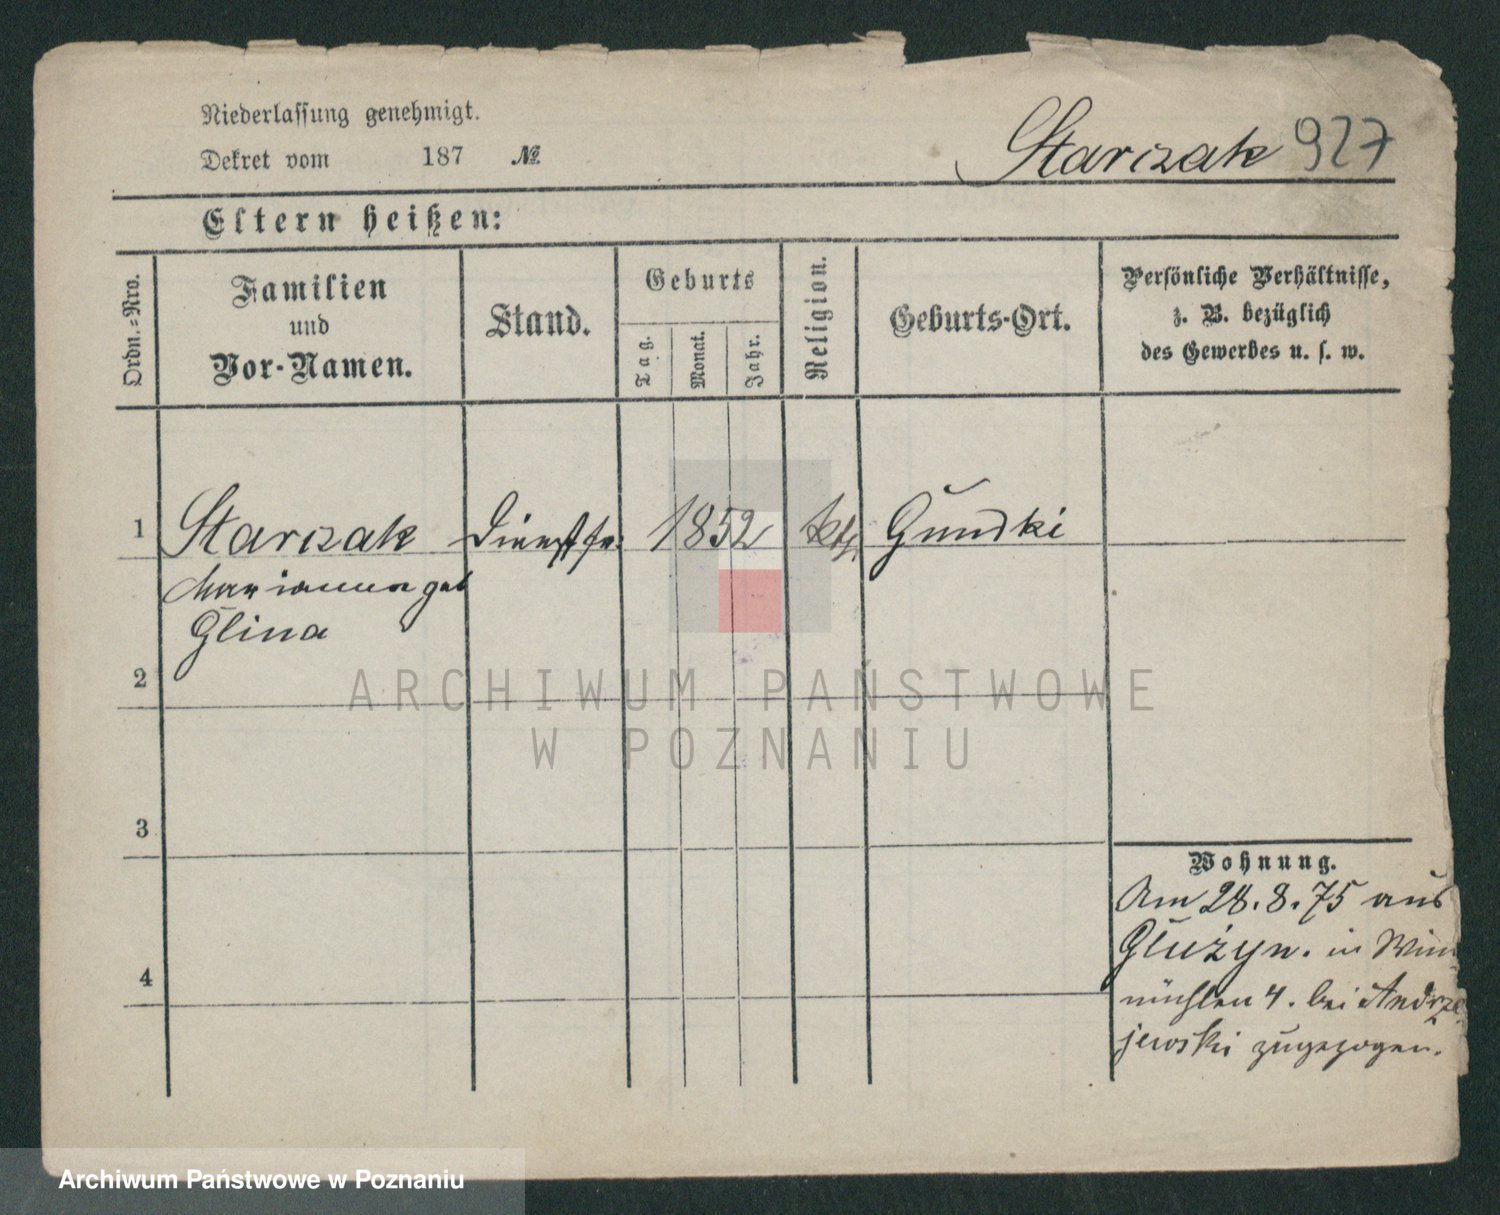 Niederlassung genehmigt.
Dekret vom 187 №
Starczak 927
Eltern heißen:
Ordn.=Nro.
Familien
und
Vor-Namen.
Stand.
Geburts
Tag.
Monat.
Jahr.
Religion.
Geburts-Ort.
Persönliche Verhältnisse,
z. B. bezüglich
des Gewerbes u. s. w.
1 Starczak 1852 kth. Gunski
Marianna geb
Glina
2
3
4
Wohnung.
Am 28.8.75 aus
Głużyn. in Wind
mühlen 4. bei Andrze
jewski zugezogen.
ARCHIWUM PAŃSTWOWE
W POZNANIU
Archiwum Państwowe w Poznaniu